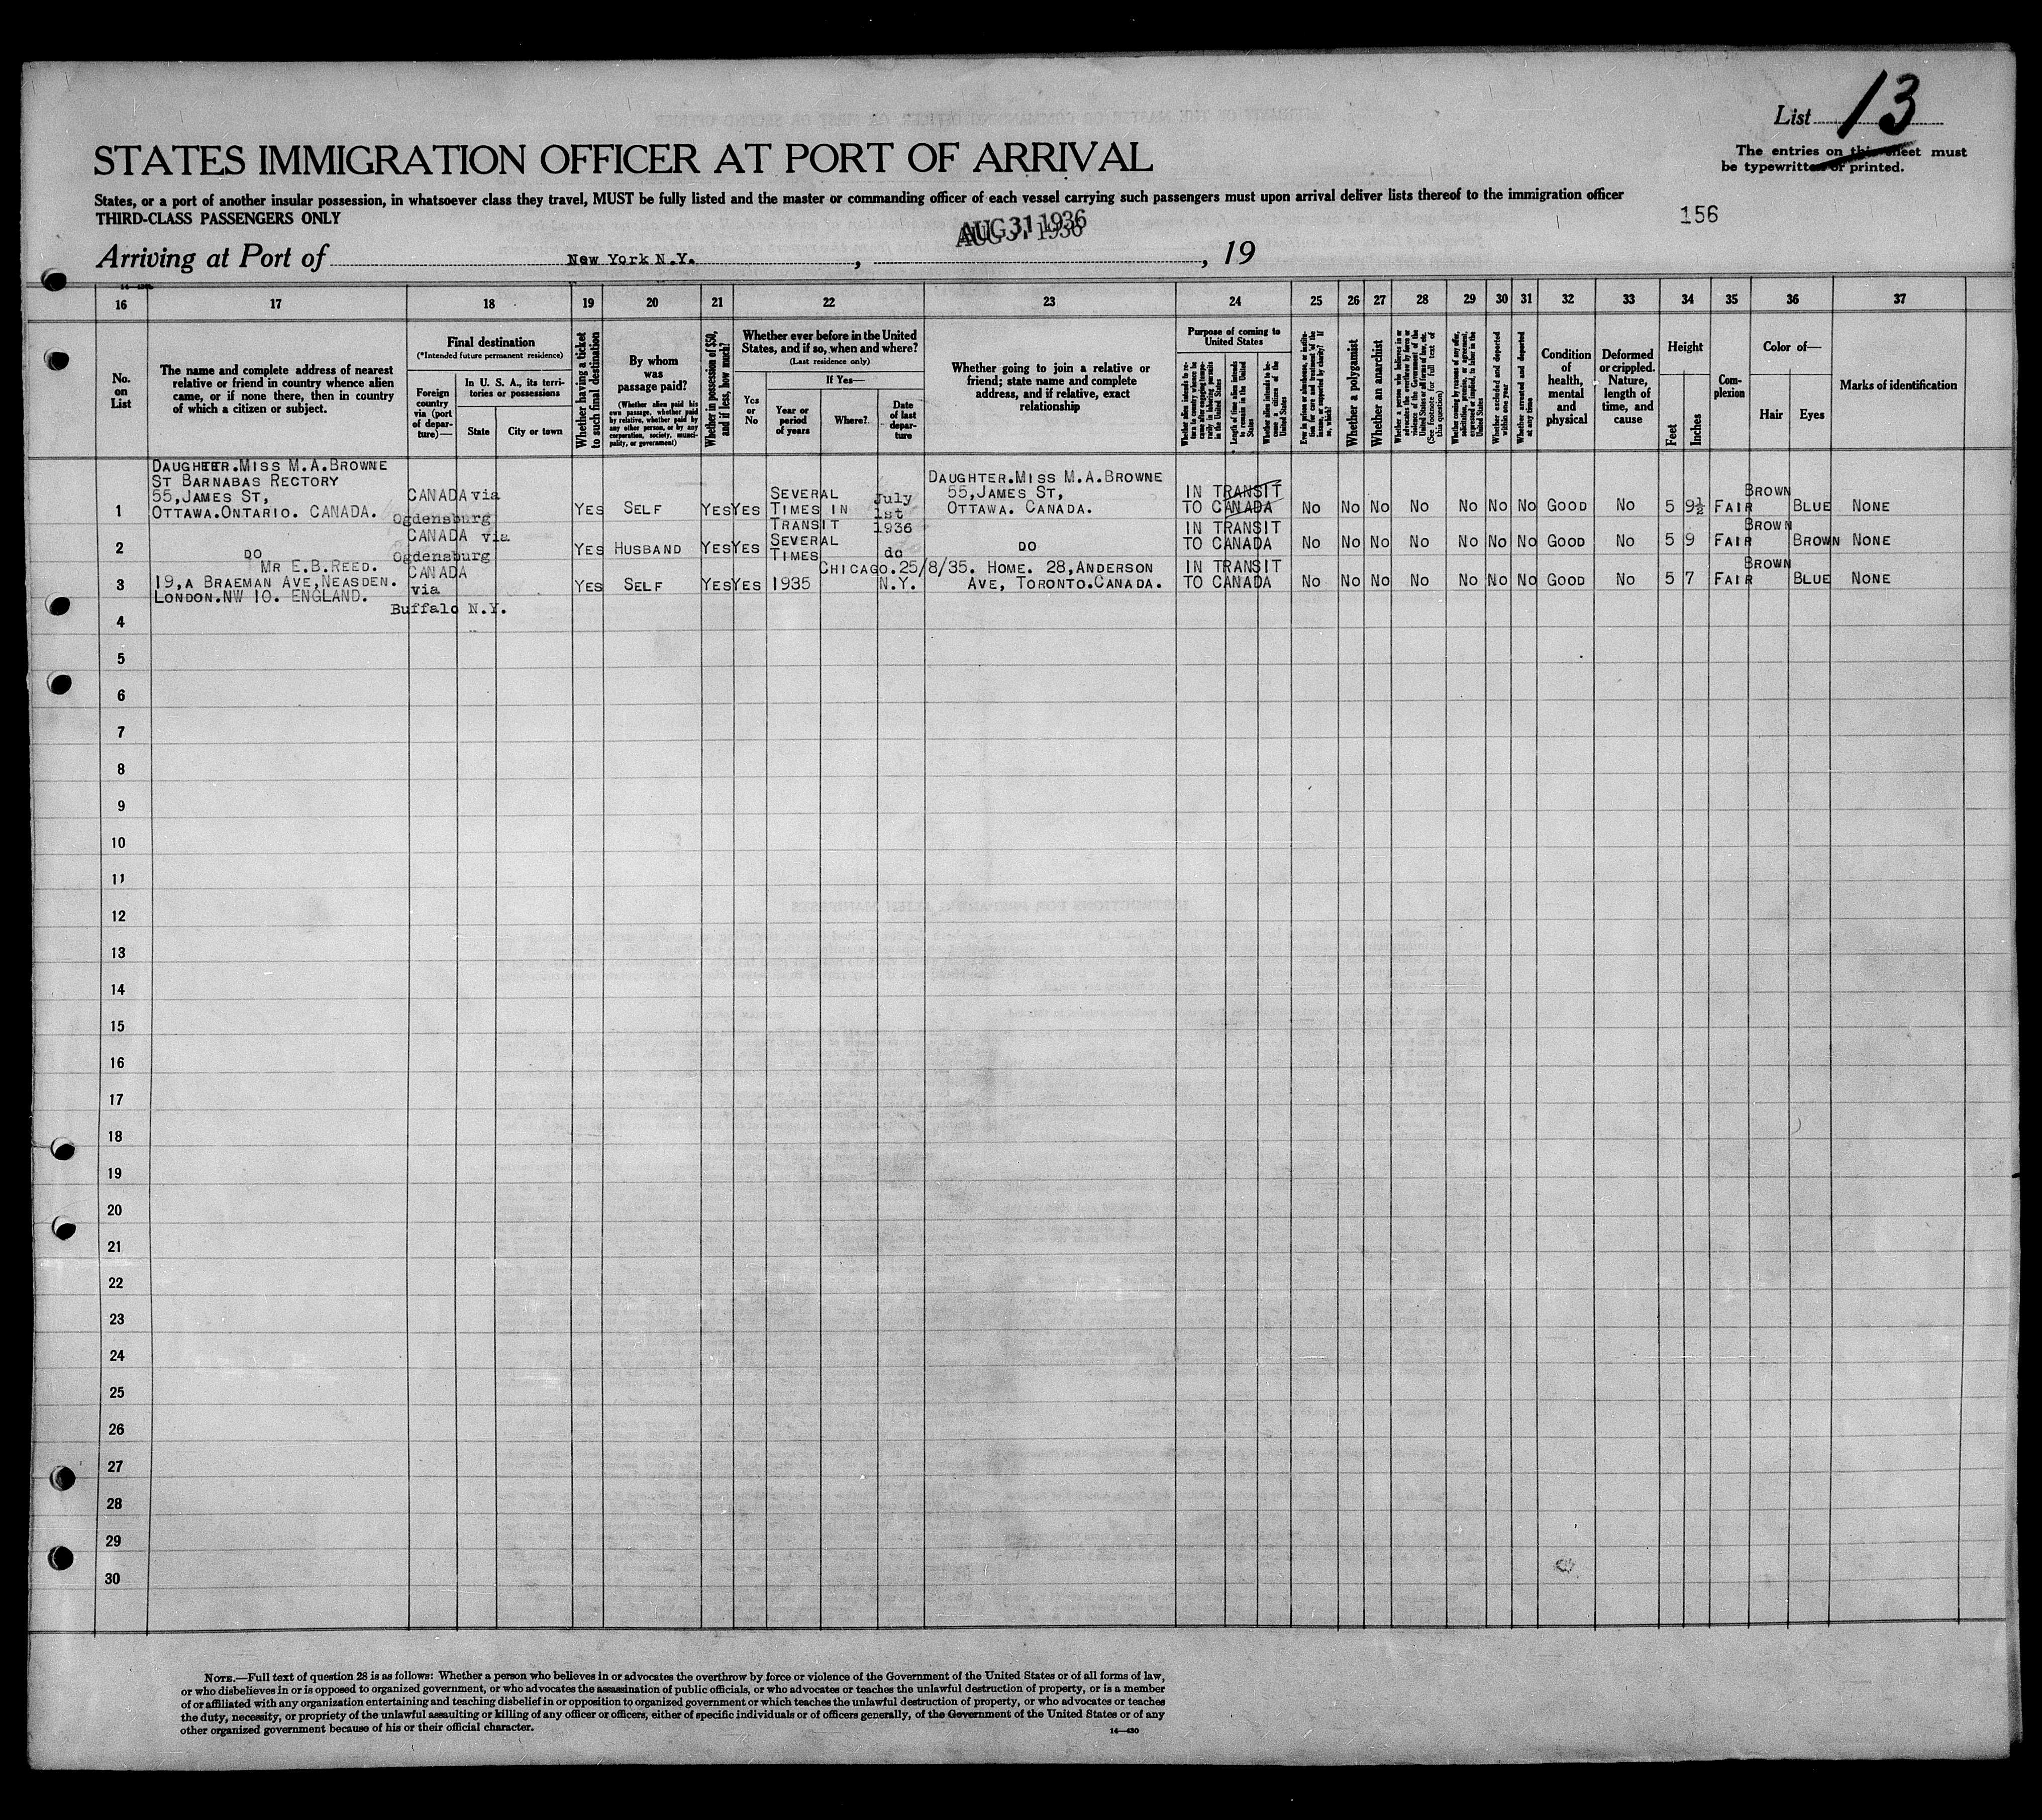 List 13
The entries on this sheet must
be typewritten or printed.
STATES IMMIGRATION OFFICER AT PORT OF ARRIVAL
States, or a port of another insular possession, in whatsoever class they travel, MUST be fully listed and the master or commanding officer of each vessel carrying such passengers must upon arrival deliver lists thereof to the immigration officer
THIRD-CLASS PASSENGERS ONLY
156
AUG 31 1936
AUG 31 1936
Arriving at Port of New York N.Y. , , 19
16 17 18 19 20 21 22 23 24 25 26 27 28 29 30 31 32 33 34 35 36 37
No. on List
The name and complete address of nearest relative or friend in country whence alien came, or if none there, then in country of which a citizen or subject.
Final destination
(*Intended future permanent residence)
Foreign country via (port of departure)—
In U. S. A., its territories or possessions
State
City or town
Whether having a ticket to such final destination
By whom was passage paid?
(Whether alien paid his own passage, whether paid by relative, whether paid by any other person, or by any corporation, society, municipality, or government)
Whether in possession of $50, and if less, how much?
Whether ever before in the United States, and if so, when and where?
(Last residence only)
Yes or No
If Yes—
Year or period of years
Where?
Date of last departure
Whether going to join a relative or friend; state name and complete address, and if relative, exact relationship
Purpose of coming to United States
Whether alien intends to return to country whence he came after engaging temporarily in laboring pursuits in the United States
Length of time alien intends to remain in the United States
Whether alien intends to become a citizen of the United States
Ever in prison or almshouse, or institution for care and treatment of the insane or supported by charity? If so, which?
Whether a polygamist
Whether an anarchist
Whether a person who believes in or advocates the overthrow by force or violence of the Government of the United States or all forms of law, etc. (See footnote for full text of this question)
Whether coming by reason of any offer, solicitation, promise, or agreement, expressed or implied, to labor in the United States
Whether excluded and deported within one year
Whether arrested and deported at any time
Condition of health, mental and physical
Deformed or crippled. Nature, length of time, and cause
Height
Feet
Inches
Complexion
Color of—
Hair
Eyes
Marks of identification
DAUGHTER.MISS M.A.BROWNE
ST BARNABAS RECTORY
55,JAMES ST,
OTTAWA.ONTARIO. CANADA.
1 CANADA via Ogdensburg YES SELF YES YES SEVERAL TIMES IN TRANSIT July 1st 1936 DAUGHTER.MISS M.A.BROWNE 55,JAMES ST, OTTAWA. CANADA. IN TRANSIT TO CANADA No No No No No No No GOOD No 5 9½ FAIR BROWN BLUE NONE
2 DO CANADA via Ogdensburg YES HUSBAND YES YES SEVERAL TIMES do DO IN TRANSIT TO CANADA No No No No No No No GOOD No 5 9 FAIR BROWN BROWN NONE
3 MR E.B.REED. 19,A BRAEMAN AVE,NEASDEN. LONDON.NW 10. ENGLAND. CANADA via Buffalo N.Y. YES SELF YES YES 1935 CHICAGO.25/8/35. N.Y. HOME. 28,ANDERSON AVE, TORONTO.CANADA. IN TRANSIT TO CANADA No No No No No No No GOOD No 5 7 FAIR BROWN BLUE NONE
4
5
6
7
8
9
10
11
12
13
14
15
16
17
18
19
20
21
22
23
24
25
26
27
28
29
30
NOTE.—Full text of question 28 is as follows: Whether a person who believes in or advocates the overthrow by force or violence of the Government of the United States or of all forms of law,
or who disbelieves in or is opposed to organized government, or who advocates the assassination of public officials, or who advocates or teaches the unlawful destruction of property, or is a member
of or affiliated with any organization entertaining and teaching disbelief in or opposition to organized government or which teaches the unlawful destruction of property, or who advocates or teaches
the duty, necessity, or propriety of the unlawful assaulting or killing of any officer or officers, either of specific individuals or of officers generally, of the Government of the United States or of any
other organized government because of his or their official character.
14—430